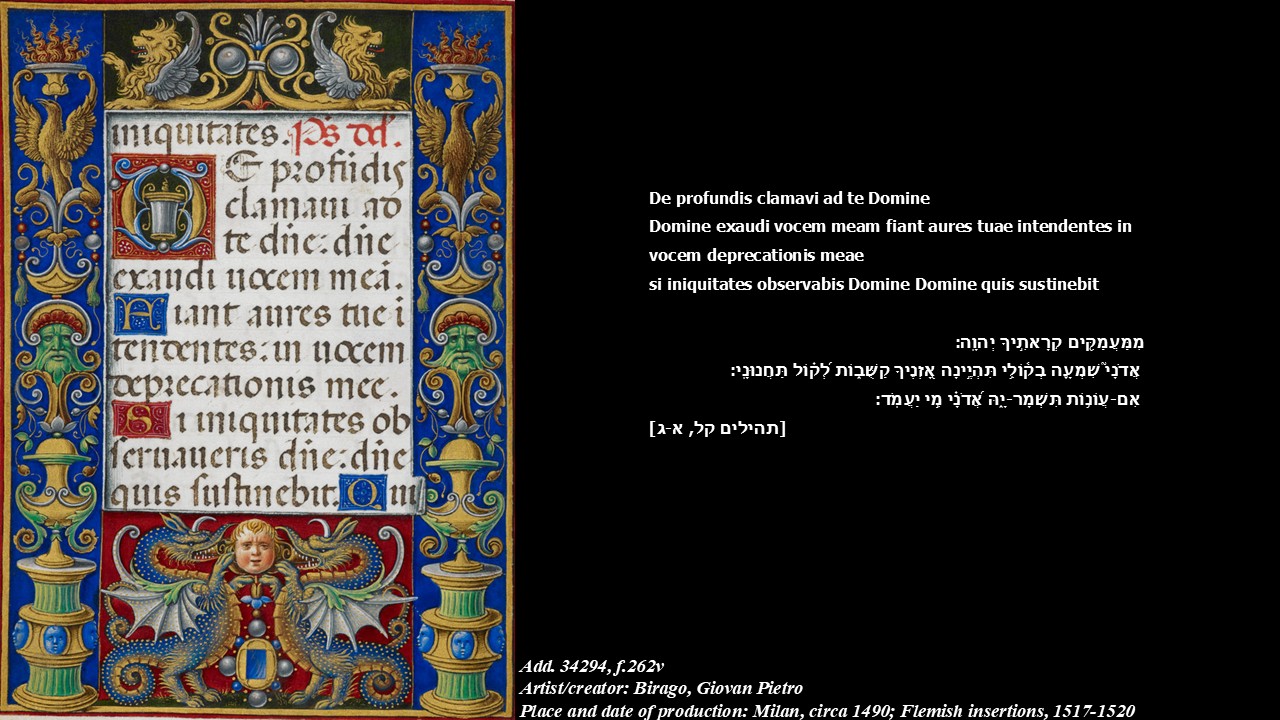 iniquitates. Ps dd.
DE profūdis
clamaui ad
te dn̄e: dn̄e
exaudi uocem meā.
Fiant aures tue ī
tendentes: in uocem
deprecationis mee.
Si iniquitates ob
seruaueris dn̄e: dn̄e
quis sustinebit. Qui
De profundis clamavi ad te Domine
Domine exaudi vocem meam fiant aures tuae intendentes in
vocem deprecationis meae
si iniquitates observabis Domine Domine quis sustinebit
מִמַּעֲמַקִּ֖ים קְרָאתִ֣יךָ יְהוָֽה׃
אֲדֹנָי֮ שִׁמְעָ֪ה בְק֫וֹלִ֥י תִּהְיֶ֣ינָה אָ֭זְנֶיךָ קַשֻּׁב֑וֹת לְ֝ק֗וֹל תַּחֲנוּנָֽי׃
אִם-עֲוֺנ֥וֹת תִּשְׁמָר-יָ֑הּ אֲ֝דֹנָ֗י מִ֣י יַעֲמֹֽד׃
[תהילים קל, א-ג]
Add. 34294, f.262v
Artist/creator: Birago, Giovan Pietro
Place and date of production: Milan, circa 1490; Flemish insertions, 1517-1520